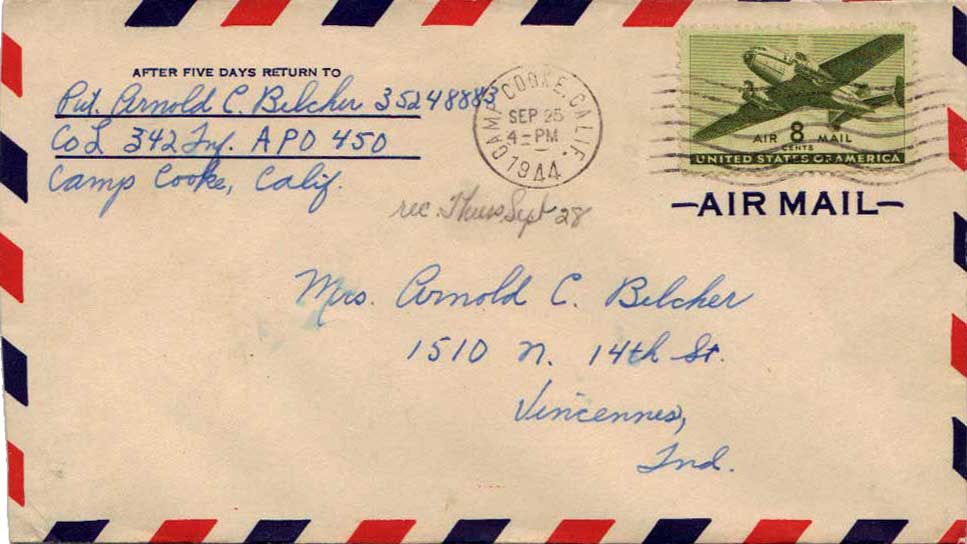 AFTER FIVE DAYS RETURN TO
Pvt. Arnold C. Belcher 35248883
Co L 342 Inf. APO 450
Camp Cooke, Calif.
CAMP COOKE, CALIF.
SEP 25
4-PM
1944
AIR 8 MAIL
CENTS
UNITED STATES OF AMERICA
-AIR MAIL-
rec. Thurs Sept 28
Mrs. Arnold C. Belcher
1510 N. 14th St.
Vincennes,
Ind.